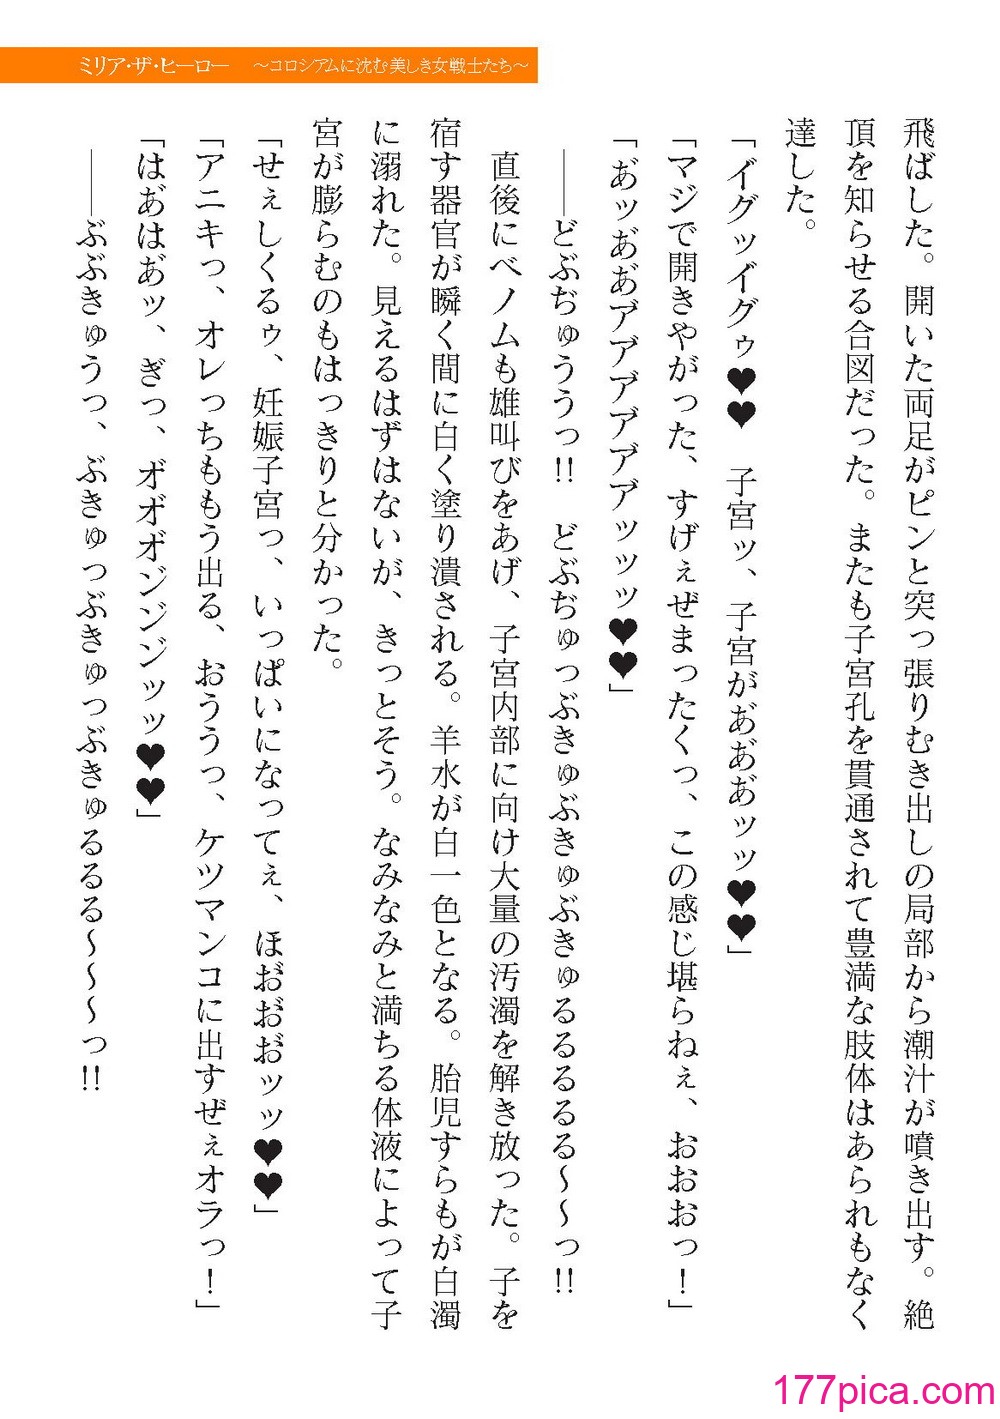 ミリア・ザ・ヒーロー ～コロシアムに沈む美しき女戦士たち～
飛ばした。開いた両足がピンと突っ張りむき出しの局部から潮汁が噴き出す。絶
頂を知らせる合図だった。またも子宮孔を貫通されて豊満な肢体はあられもなく
達した。
「イグッイグゥ♥♥　子宮ッ、子宮があ゛あ゛あ゛ッッ♥♥」
「マジで開きやがった、すげぇぜまったくっ、この感じ堪らねぇ、おおおっ！」
「あ゛ッあ゛あ゛ア゛ア゛ア゛ア゛ア゛ア゛ッッッ♥♥」
――どぶぢゅううっ!!　どぶぢゅっぶきゅぶきゅぶきゅるるるるる～～っ!!
直後にベノムも雄叫びをあげ、子宮内部に向け大量の汚濁を解き放った。子を
宿す器官が瞬く間に白く塗り潰される。羊水が白一色となる。胎児すらもが白濁
に溺れた。見えるはずはないが、きっとそう。なみなみと満ちる体液によって子
宮が膨らむのもはっきりと分かった。
「せぇしくるゥ、妊娠子宮っ、いっぱいになってぇ、ほお゛お゛お゛ッッ♥♥」
「アニキっ、オレっちももう出る、おううっ、ケツマンコに出すぜぇオラっ！」
「はあ゛はあ゛ッ、ぎっ、オ゛オ゛オ゛ンンンッッ♥♥」
――ぶぶきゅうっ、ぶきゅっぶきゅっぶきゅるるる～～～っ!!
177pica.com